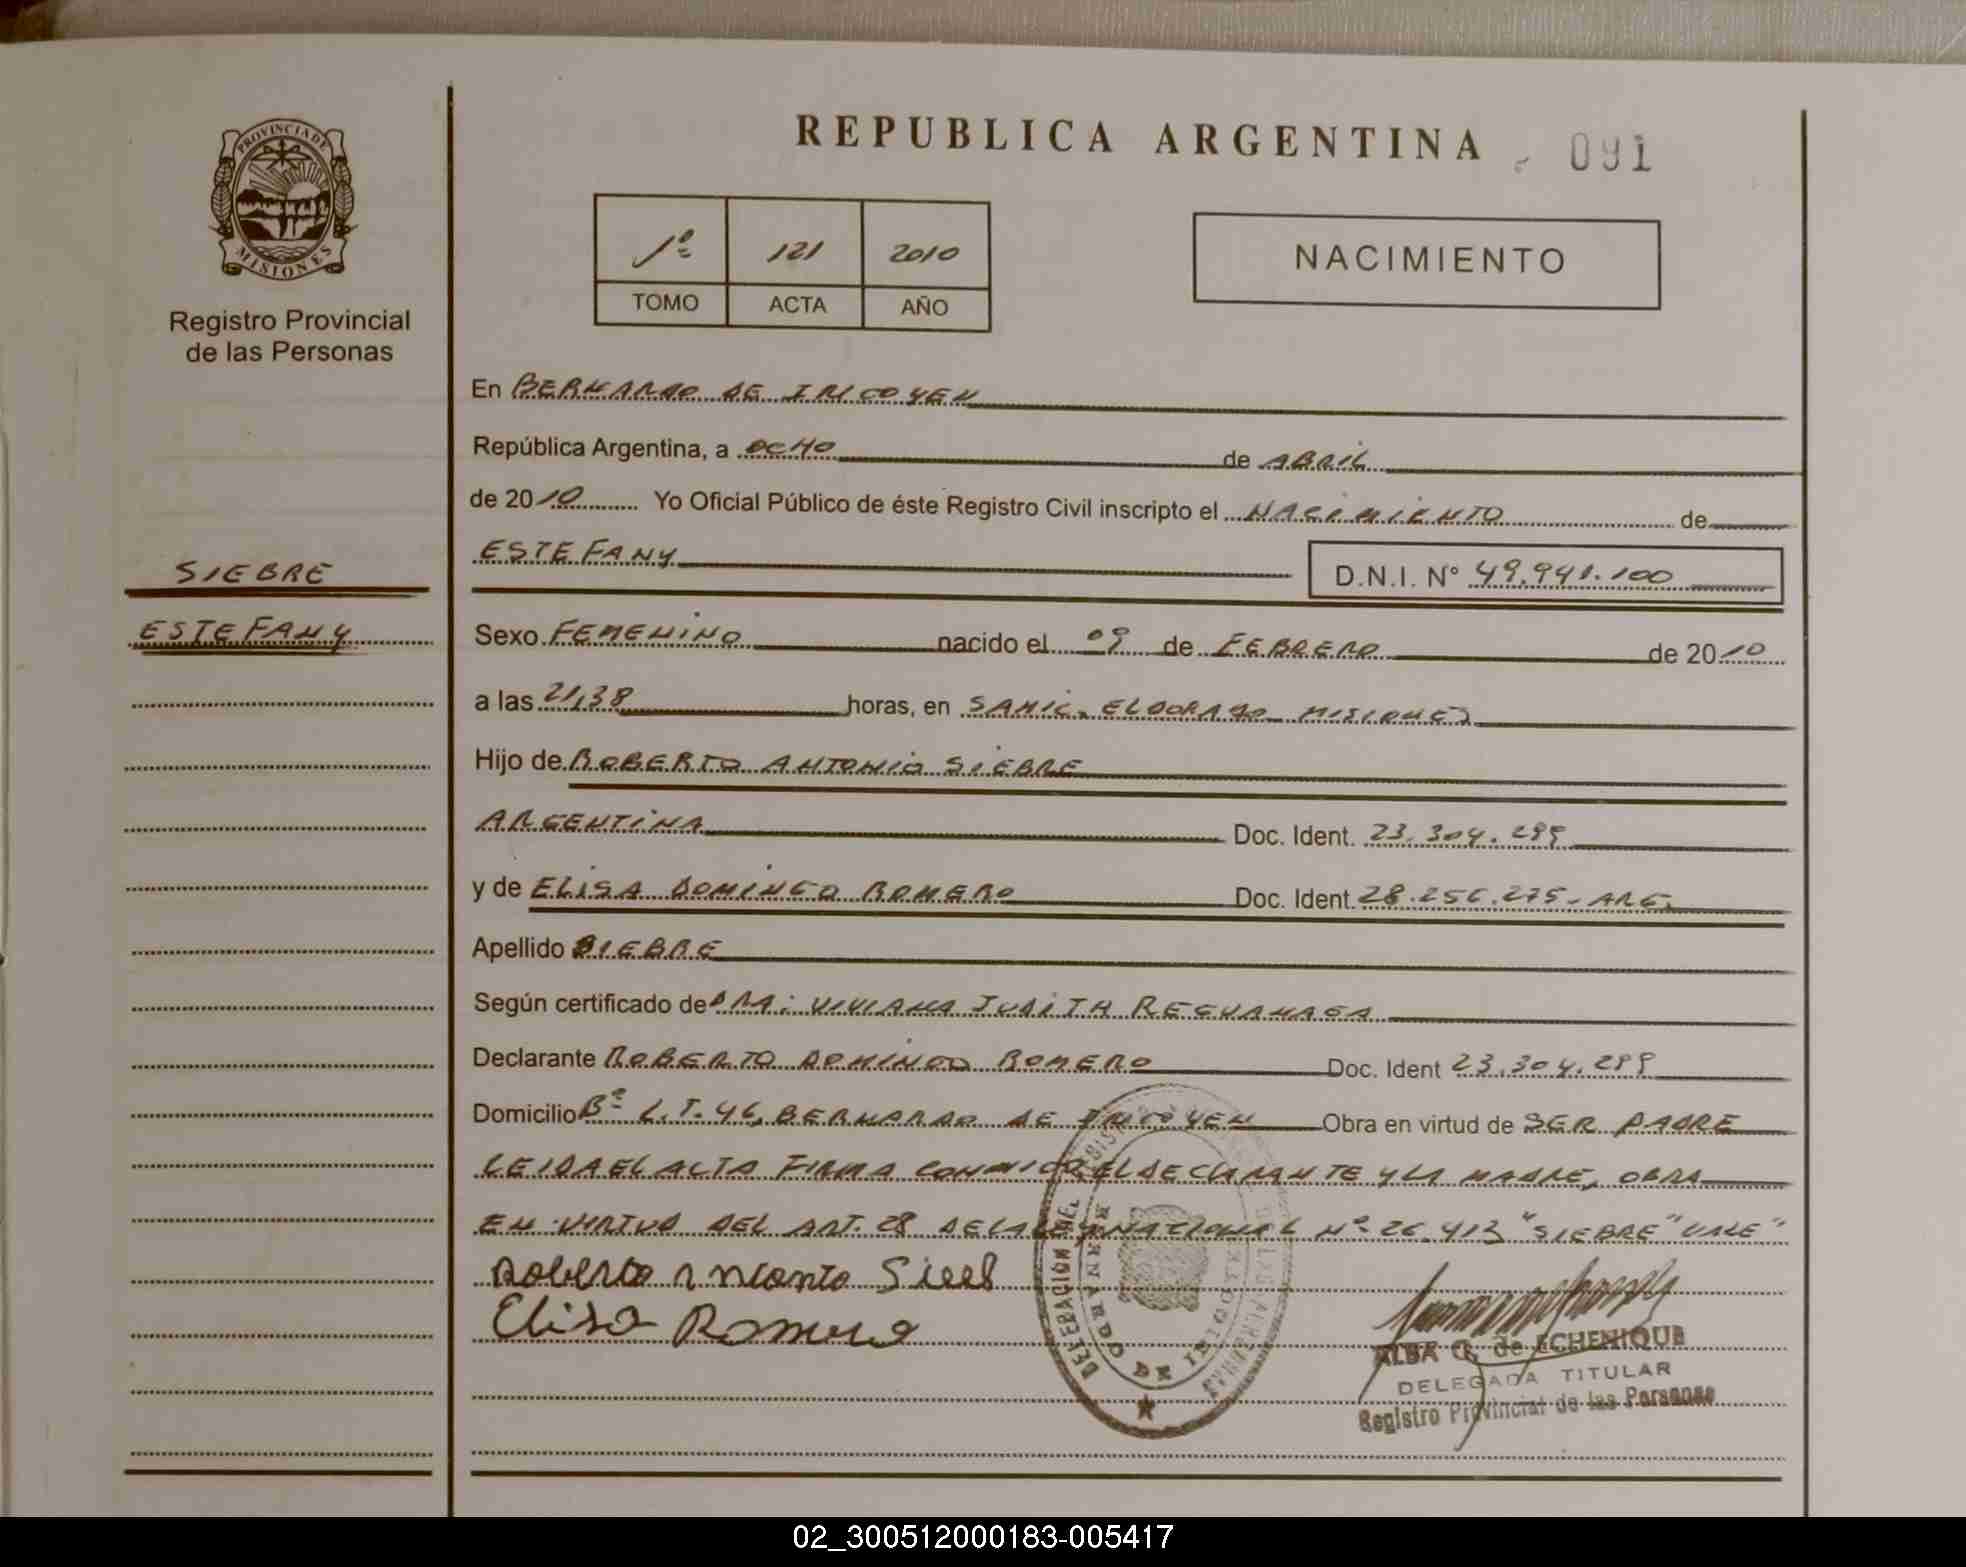 PROVINCIA DE
MISIONES
Registro Provincial
de las Personas
SIEBRE
ESTEFANY
REPUBLICA ARGENTINA 091
1º 121 2010
TOMO ACTA AÑO
NACIMIENTO
En BERNARDO DE IRIGOYEN
República Argentina, a OCHO de ABRIL
de 2010 Yo Oficial Público de éste Registro Civil inscripto el NACIMIENTO de
ESTEFANY D.N.I. Nº 49.941.100
Sexo FEMENINO nacido el 09 de FEBRERO de 2010
a las 21,38 horas, en SAMIC. ELDORADO MISIONES
Hijo de ROBERTO ANTONIO SIEBRE
ARGENTINA Doc. Ident. 23.304.299
y de ELISA DOMINGO ROMERO Doc. Ident. 28.256.275- ARG.
Apellido SIEBRE
Según certificado de DRA: VIVIANA JUDITH REGUNAGA
Declarante ROBERTO DOMINGO ROMERO Doc. Ident 23.304.299
Domicilio Bº L.T. 46, BERNARDO DE IRIGOYEN Obra en virtud de SER PADRE
LEIDA EL ACTA FIRMA CONMIGO, EL DECLARANTE Y LA MADRE, OBRA
EN VIRTUD DEL ART. 28 DE LA LEY NACIONAL Nº 26.413 "SIEBRE" VALE"
Roberto
Elisa Romero
DELEGACION DEL
BERNARDO DE IRIGOYEN
ALBA de ECHENIQUE
DELEGADA TITULAR
Registro Provincial de las Personas
02_300512000183-005417